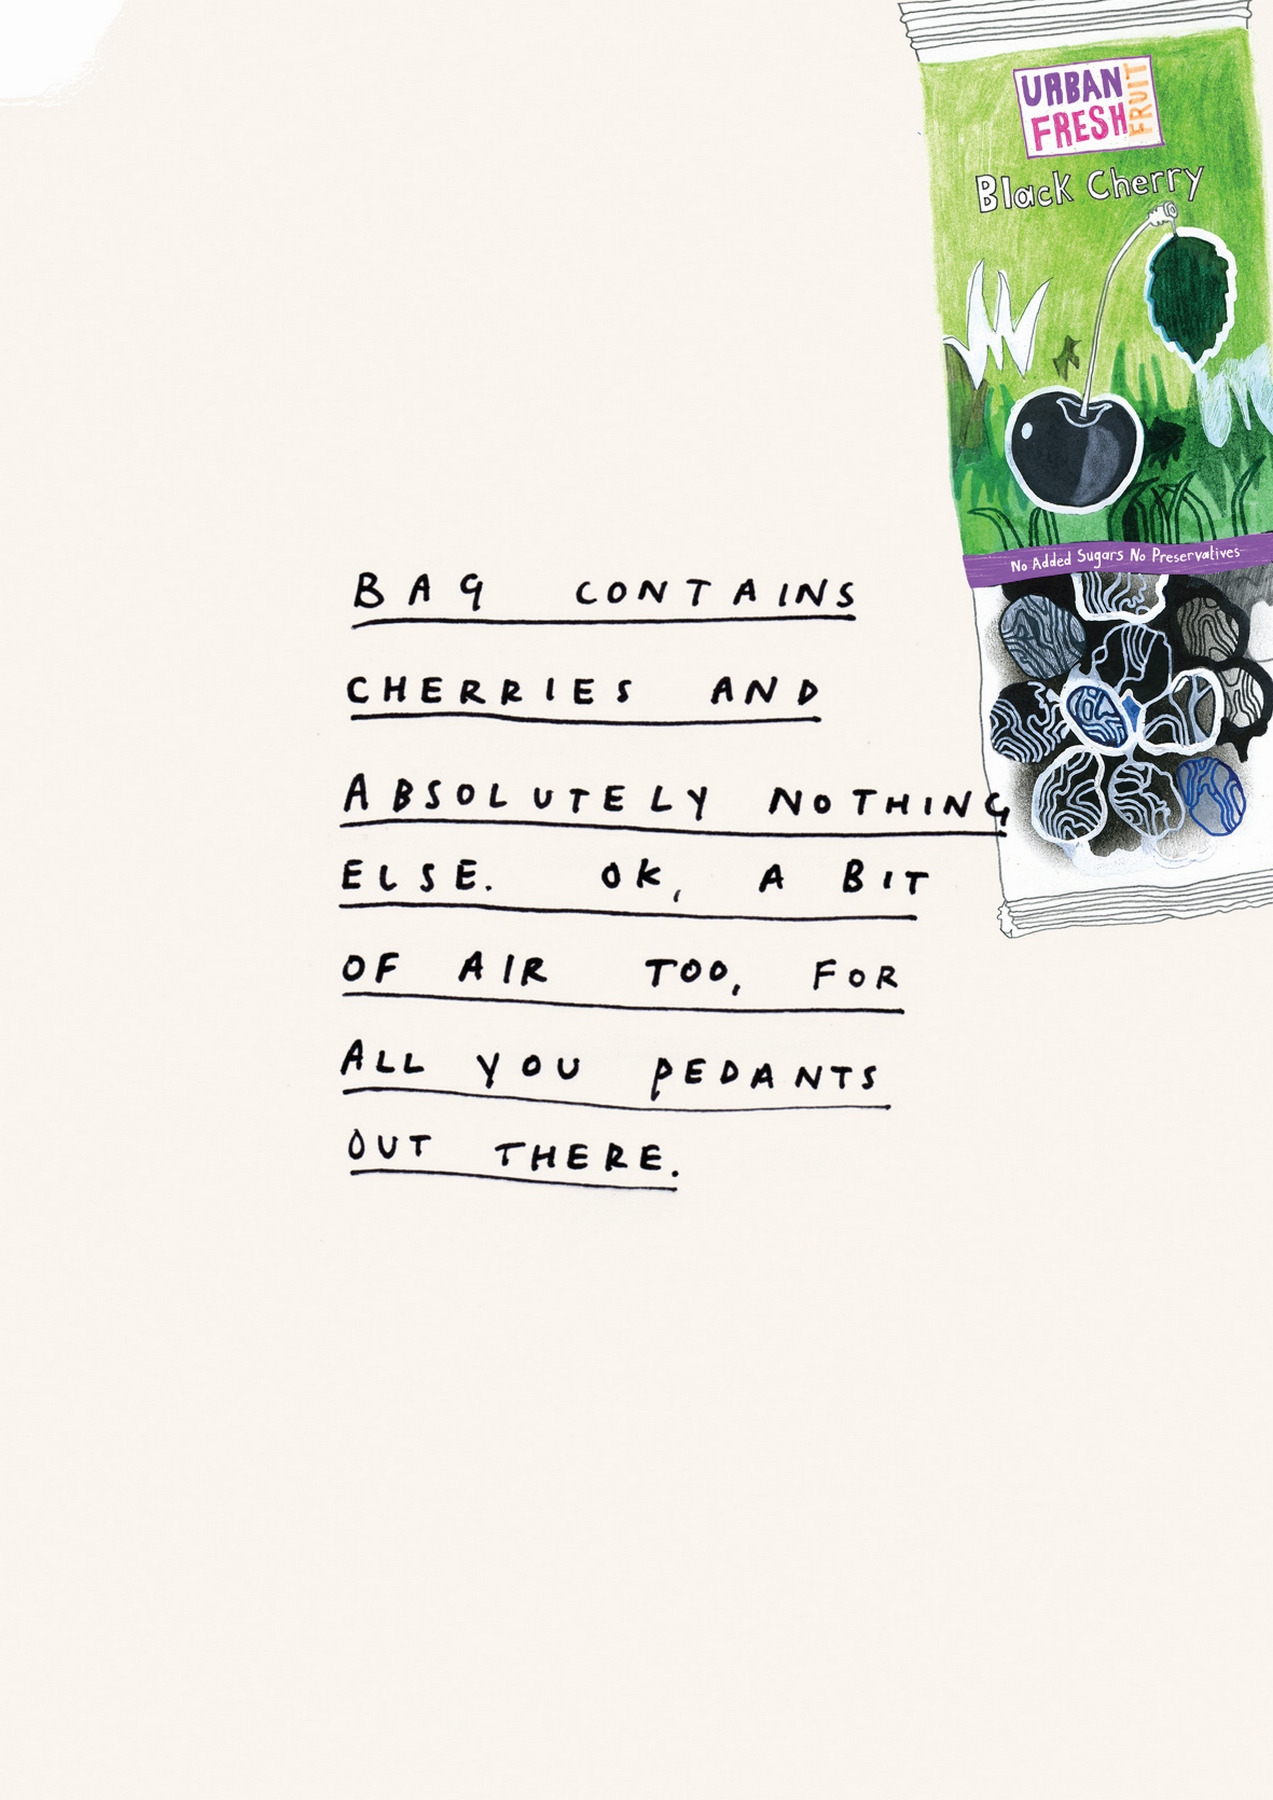 URBAN
FRESH
FRUIT
Black Cherry
No Added Sugars No Preservatives
BAG CONTAINS
CHERRIES AND
ABSOLUTELY NOTHING
ELSE. OK, A BIT
OF AIR TOO, FOR
ALL YOU PEDANTS
OUT THERE.